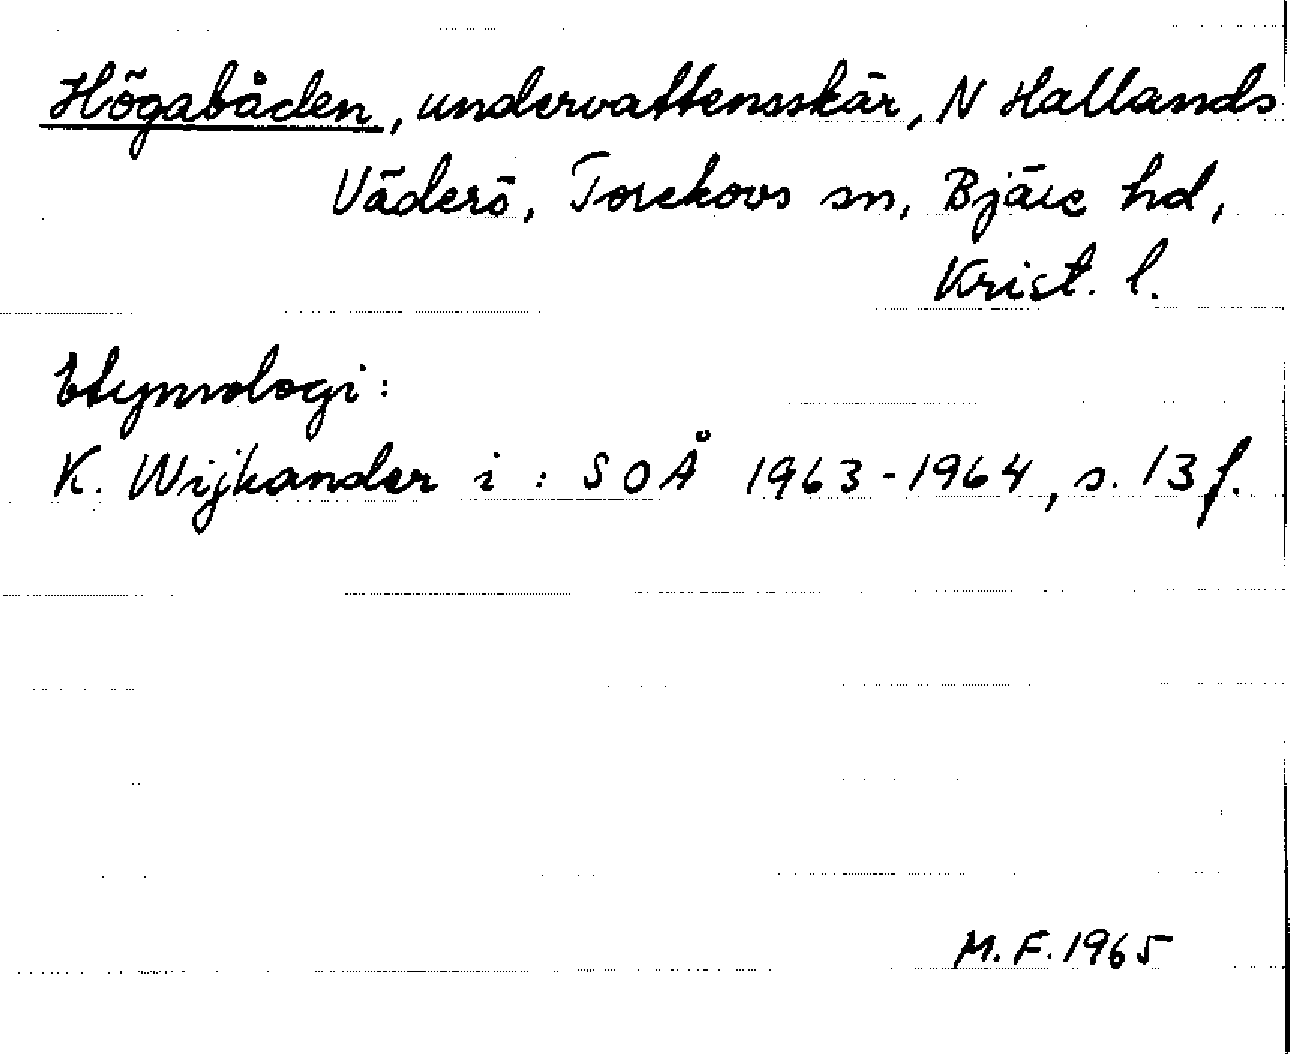 Högabåden, undervattensskär, N Hallands
Väderö, Torekovs sn, Bjäre hd,
Krist. l.
Etymologi:
K. Wijkander i: SOÅ 1963-1964, s. 13 f.
M.F. 1965